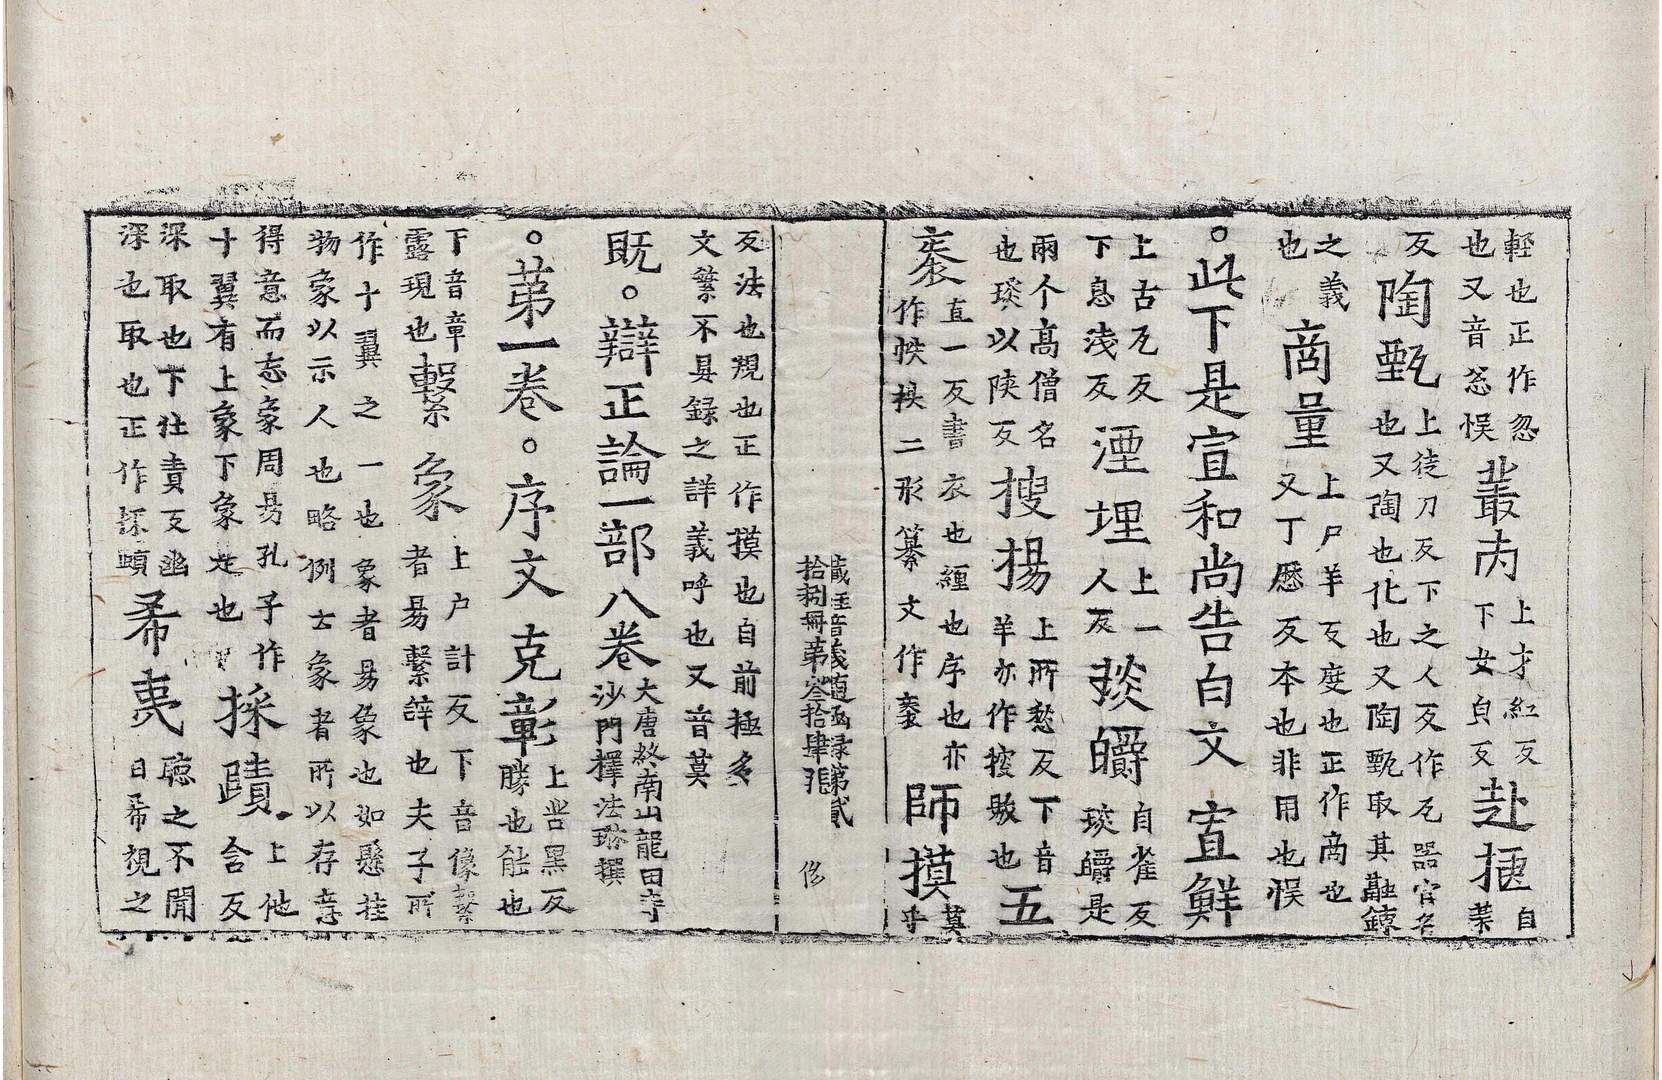 輕也正作忽
也又音忩悮
叢芮
上才紅反
下女員反
赴𢮿
自
業
反
陶甄
上徒刀反下之人反作瓦器官名
也又陶也化也又陶甄取其融鍊
之義
也
商量
上尸羊反度也正作啇也
又丁歷反本也非用也悮
。此下是宣和尚告白文 寡鮮
上古瓦反
下息淺反
湮埋
上一
人反
琰皭
自雀反
琰皭是
兩个高僧名
也琰以陝反
搜揚
上所愁反下音
羊亦作摉敭也
五
袠
直一反書衣也纏也序也亦
作帙袟二形纂文作袠
師摸
莫
乎
藏經音義隨函錄第貳
拾捌冊第叁拾肆張
反法也規也正作摸也自前極多
文繁不具錄之詳義呼也又音莫
既。辯正論一部八卷
大唐終南山龍田寺
沙門釋法琳撰
。第一卷。序文 克彰
上苦黑反
勝也能也
下音章
露現也
繫象
上户計反下音像繫
者易繫辭也夫子所
作十翼之一也象者易象也如懸挂
物象以示人也略例云象者所以存意
得意而忘象周易孔子作
十翼有上象下象是也
探賾
上他
含反
深取也下仕責反幽
深也取也正作探賾
希夷
聽之不聞
曰希視之